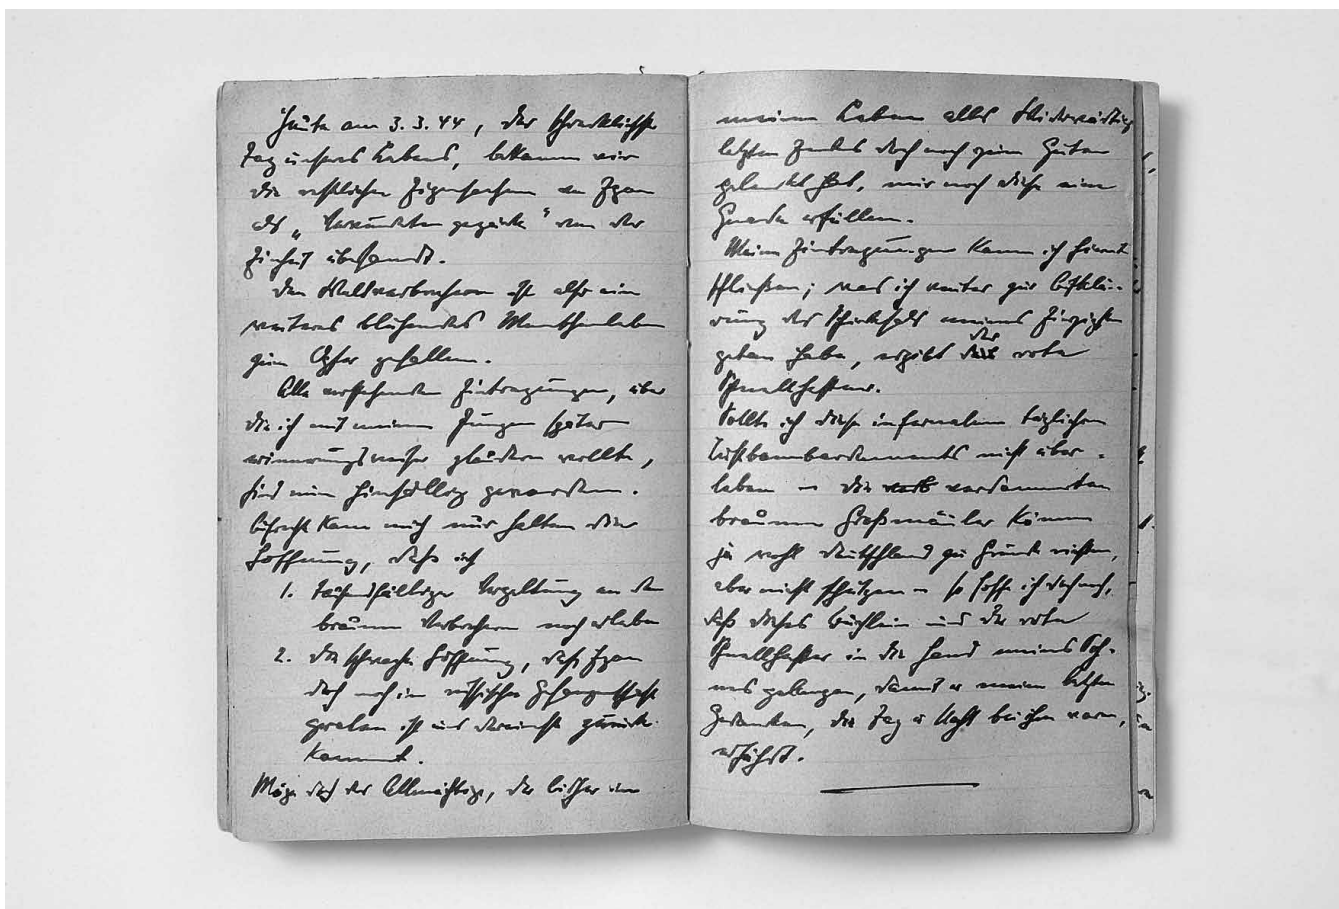 Heute am 3.3.44, der schrecklichste
Tag unseres Lebens, bekamen wir
die restlichen Eigensachen von Egon
als „Verwundetengepäck“ von der
Einheit übersandt.
Den Weltverbrechern ist also ein
weiteres blühendes Menschenleben
zum Opfer gefallen.
Alle vorstehenden Eintragungen, über
die ich mit meinem Jungen später
erinnerungsweise plaudern wollte,
sind nun hinfällig geworden.
Aufrecht kann mich nur halten die
Hoffnung, dass ich
1. tausendfältige Vergeltung an den
braunen Verbrechern noch erlebe
2. die schwache Hoffnung, dass Egon
doch noch in russischer Gefangenschaft
geraten ist und dereinst zurück-
kommt.
Möge doch der Allmächtige, der bisher in
meinem Leben alles Widerwärtige
letzten Endes doch noch zum Guten
gelenkt hat, mir noch diese eine
Gnade erfüllen.
Meine Eintragungen kann ich hiermit
schließen; was ich weiter zur Aufklä-
rung des Schicksals meines Einzigsten
getan habe, ergibt der rote
Schnellhefter.
Sollte ich diese infernalen täglichen
Luftbombardements nicht über-
leben – die verdammten
braunen Großmäuler können
ja wohl Deutschland zu Grunde richten,
aber nicht schützen – so hoffe ich dennoch,
daß dieses Büchlein und der rote
Schnellhefter in die Hand meines Soh-
nes gelangen, damit er meine letzten
Gedanken, die Tag u. Nacht bei ihm waren,
erfährt.